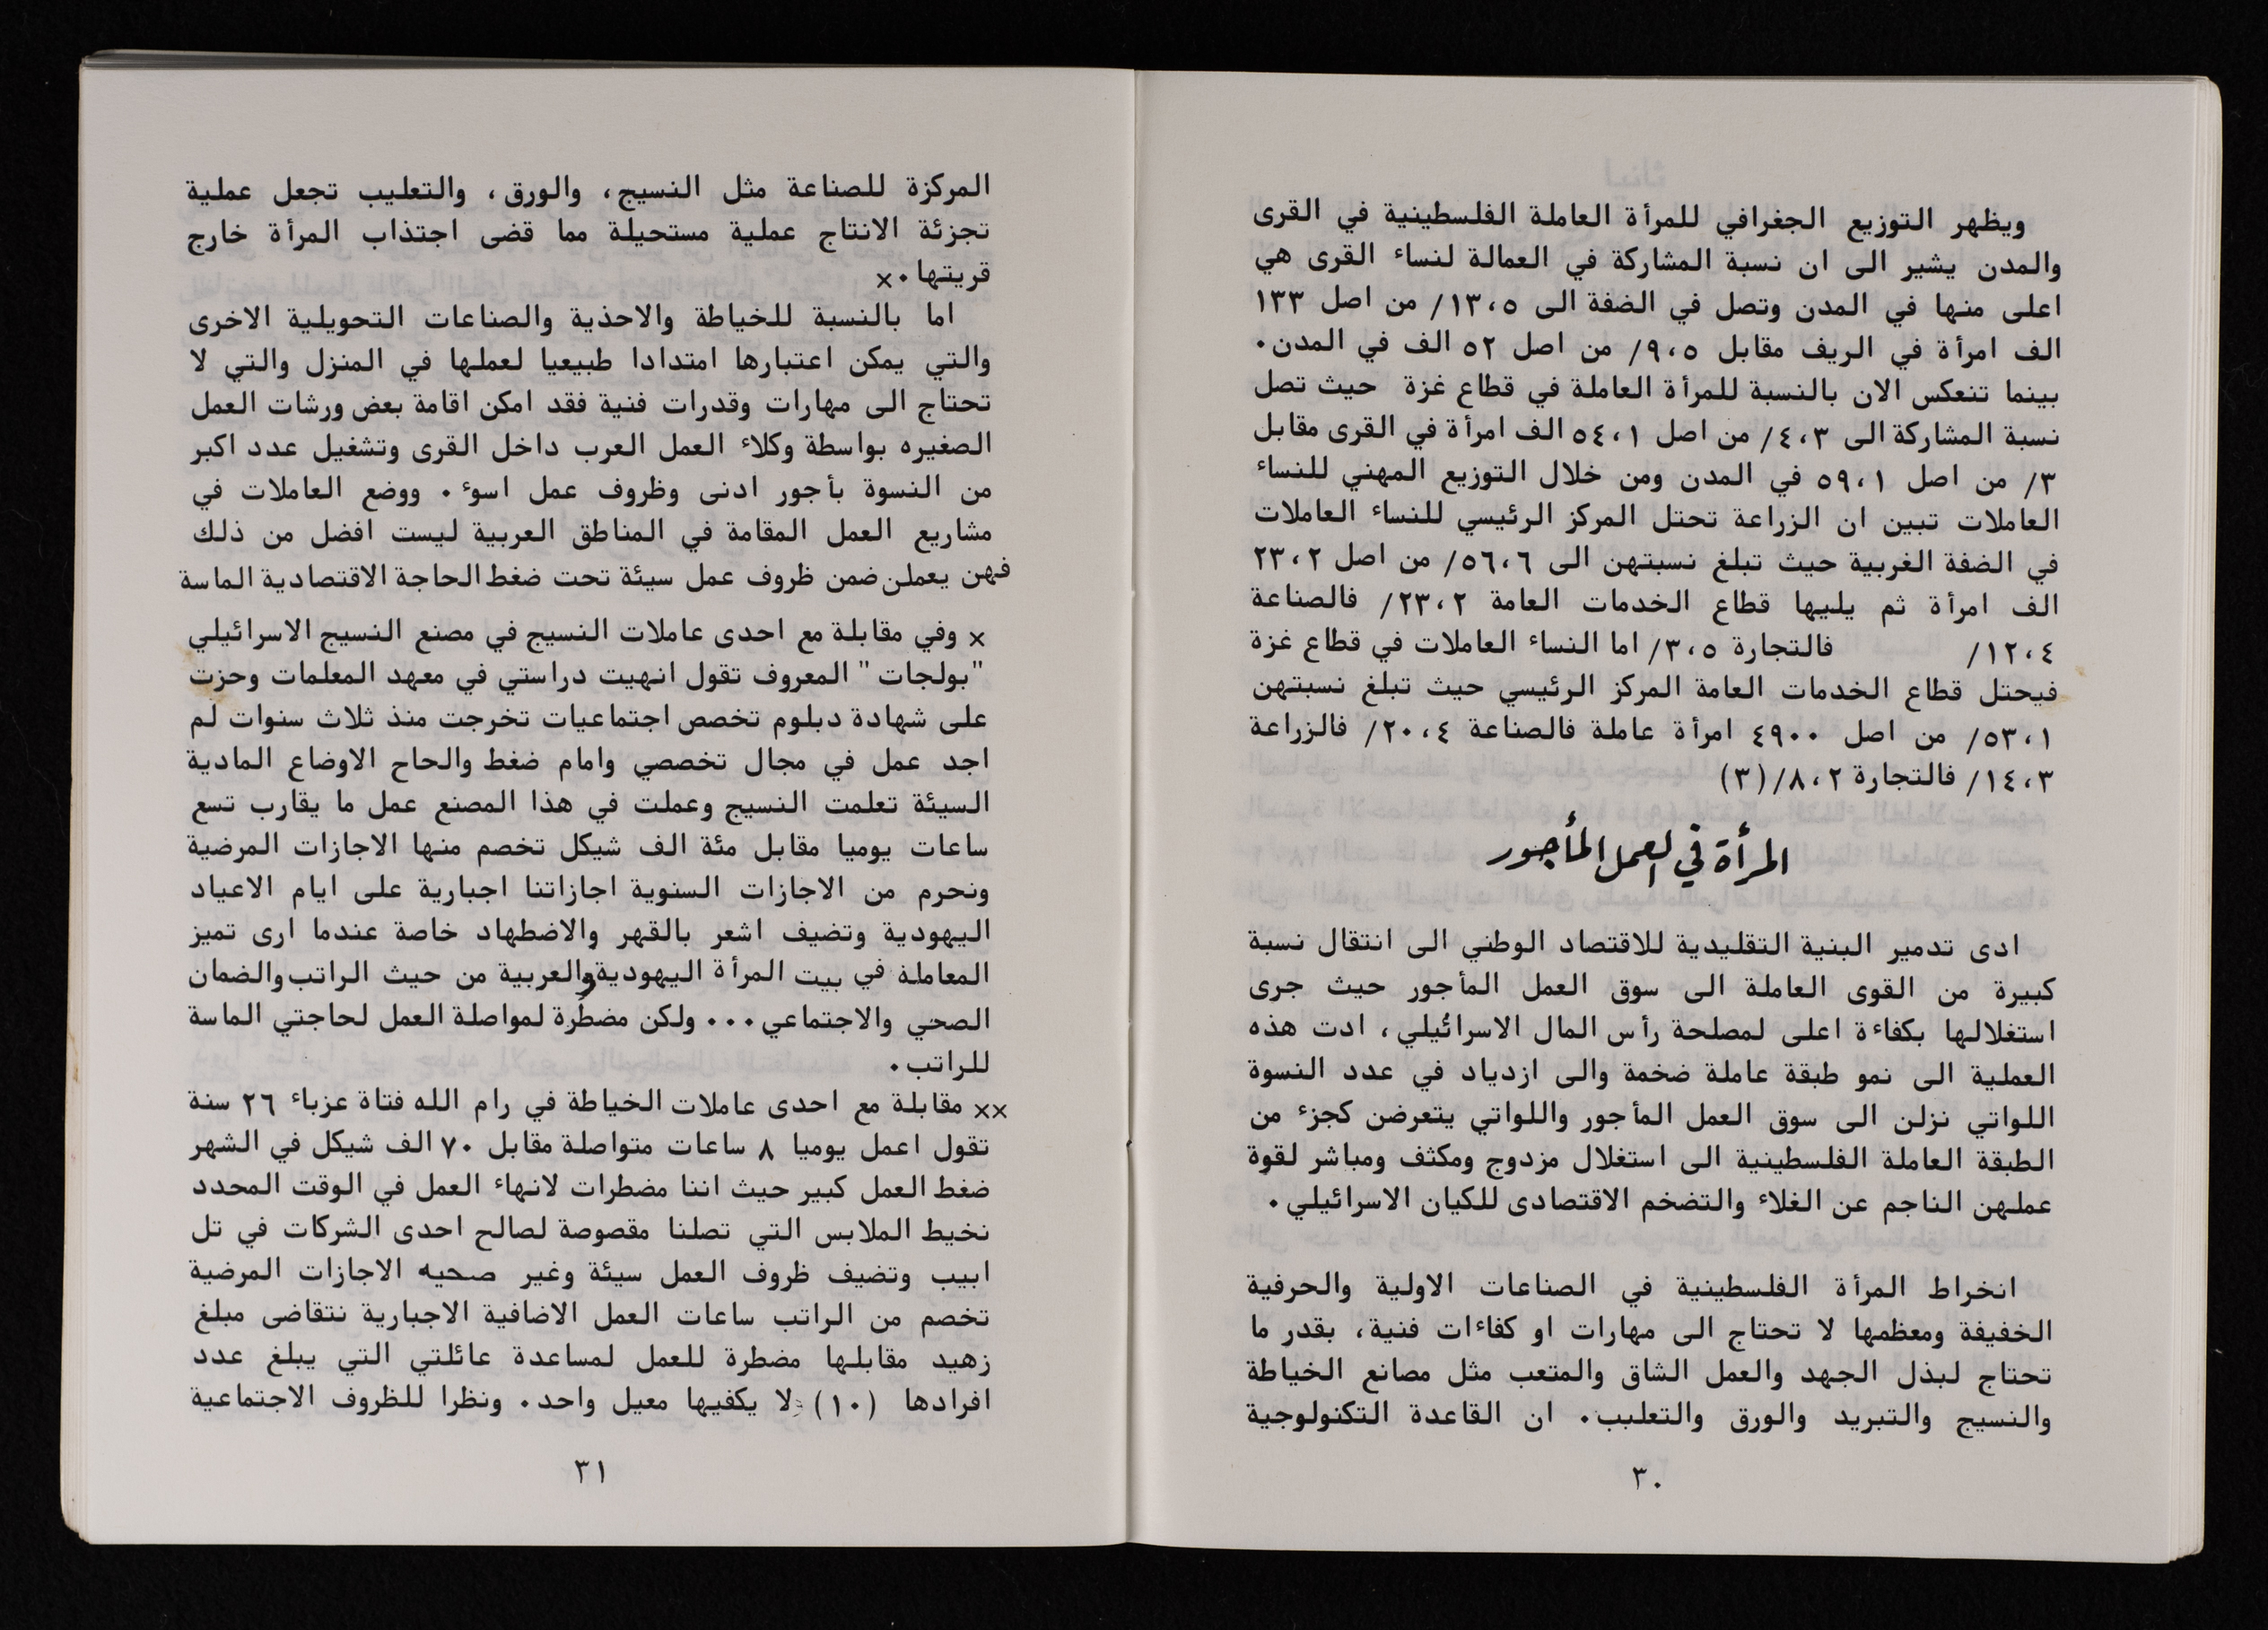 ويظهر التوزيع الجغرافي للمرأة العاملة الفلسطينية في القرى
والمدن يشير الى ان نسبة المشاركة في العمالة لنساء القرى هي
اعلى منها في المدن وتصل في الضفة الى ١٣،٥/ من اصل ١٣٣
الف امرأة في الريف مقابل ٩،٥/ من اصل ٥٢ الف في المدن.
بينما تنعكس الان بالنسبة للمرأة العاملة في قطاع غزة حيث تصل
نسبة المشاركة الى ٤،٣/ من اصل ٥٤،١ الف امرأة في القرى مقابل
٣/ من اصل ٥٩،١ في المدن ومن خلال التوزيع المهني للنساء
العاملات تبين ان الزراعة تحتل المركز الرئيسي للنساء العاملات
في الضفة الغربية حيث تبلغ نسبتهن الى ٥٦،٦/ من اصل ٢٣،٢
الف امرأة ثم يليها قطاع الخدمات العامة ٢٣،٢/ فالصناعة
١٢،٤/ فالتجارة ٣،٥/ اما النساء العاملات في قطاع غزة
فيحتل قطاع الخدمات العامة المركز الرئيسي حيث تبلغ نسبتهن
٥٣،١/ من اصل ٤٩٠٠ امرأة عاملة فالصناعة ٢٠،٤/ فالزراعة
١٤،٣/ فالتجارة ٨،٢/(٣)
المرأة في العمل المأجور
ادى تدمير البنية التقليدية للاقتصاد الوطني الى انتقال نسبة
كبيرة من القوى العاملة الى سوق العمل المأجور حيث جرى
استغلالها بكفاءة اعلى لمصلحة رأس المال الاسرائيلي، ادت هذه
العملية الى نمو طبقة عاملة ضخمة والى ازدياد في عدد النسوة
اللواتي نزلن الى سوق العمل المأجور واللواتي يتعرضن كجزء من
الطبقة العاملة الفلسطينية الى استغلال مزدوج ومكثف ومباشر لقوة
عملهن الناجم عن الغلاء والتضخم الاقتصادى للكيان الاسرائيلي.
انخراط المرأة الفلسطينية في الصناعات الاولية والحرفية
الخفيفة ومعظمها لا تحتاج الى مهارات او كفاءات فنية، بقدر ما
تحتاج لبذل الجهد والعمل الشاق والمتعب مثل مصانع الخياطة
والنسيج والتبريد والورق والتعلبب. ان القاعدة التكنولوجية
٣٠
المركزة للصناعة مثل النسيج، والورق، والتعليب تجعل عملية
تجزئة الانتاج عملية مستحيلة مما قضى اجتذاب المرأة خارج
قريتها.×
اما بالنسبة للخياطة والاحذية والصناعات التحويلية الاخرى
والتي يمكن اعتبارها امتدادا طبيعيا لعملها في المنزل والتي لا
تحتاج الى مهارات وقدرات فنية فقد امكن اقامة بعض ورشات العمل
الصغيره بواسطة وكلاء العمل العرب داخل القرى وتشغيل عدد اكبر
من النسوة بأجور ادنى وظروف عمل اسوء. ووضع العاملات في
مشاريع العمل المقامة في المناطق العربية ليست افضل من ذلك
فهن يعملن ضمن ظروف عمل سيئة تحت ضغط الحاجة الاقتصادية الماسة
× وفي مقابلة مع احدى عاملات النسيج في مصنع النسيج الاسرائيلي
"بولجات" المعروف تقول انهيت دراستي في معهد المعلمات وحزت
على شهادة دبلوم تخصص اجتماعيات تخرجت منذ ثلاث سنوات لم
اجد عمل في مجال تخصصي وامام ضغط والحاح الاوضاع المادية
السيئة تعلمت النسيج وعملت في هذا المصنع عمل ما يقارب تسع
ساعات يوميا مقابل مئة الف شيكل تخصم منها الاجازات المرضية
ونحرم من الاجازات السنوية اجازاتنا اجبارية على ايام الاعياد
اليهودية وتضيف اشعر بالقهر والاضطهاد خاصة عندما ارى تميز
المعاملة في بيت المرأة اليهودية والعربية من حيث الراتب والضمان
الصحي والاجتماعي... ولكن مضطرة لمواصلة العمل لحاجتي الماسة
للراتب.
×× مقابلة مع احدى عاملات الخياطة في رام الله فتاة عزباء ٢٦ سنة
تقول اعمل يوميا ٨ ساعات متواصلة مقابل ٧٠ الف شيكل في الشهر
ضغط العمل كبير حيث اننا مضطرات لانهاء العمل في الوقت المحدد
نخيط الملابس التي تصلنا مقصوصة لصالح احدى الشركات في تل
ابيب وتضيف ظروف العمل سيئة وغير صحيه الاجازات المرضية
تخصم من الراتب ساعات العمل الاضافية الاجبارية نتقاضى مبلغ
زهيد مقابلها مضطرة للعمل لمساعدة عائلتي التي يبلغ عدد
افرادها (١٠) لا يكفيها معيل واحد. ونظرا للظروف الاجتماعية
٣١